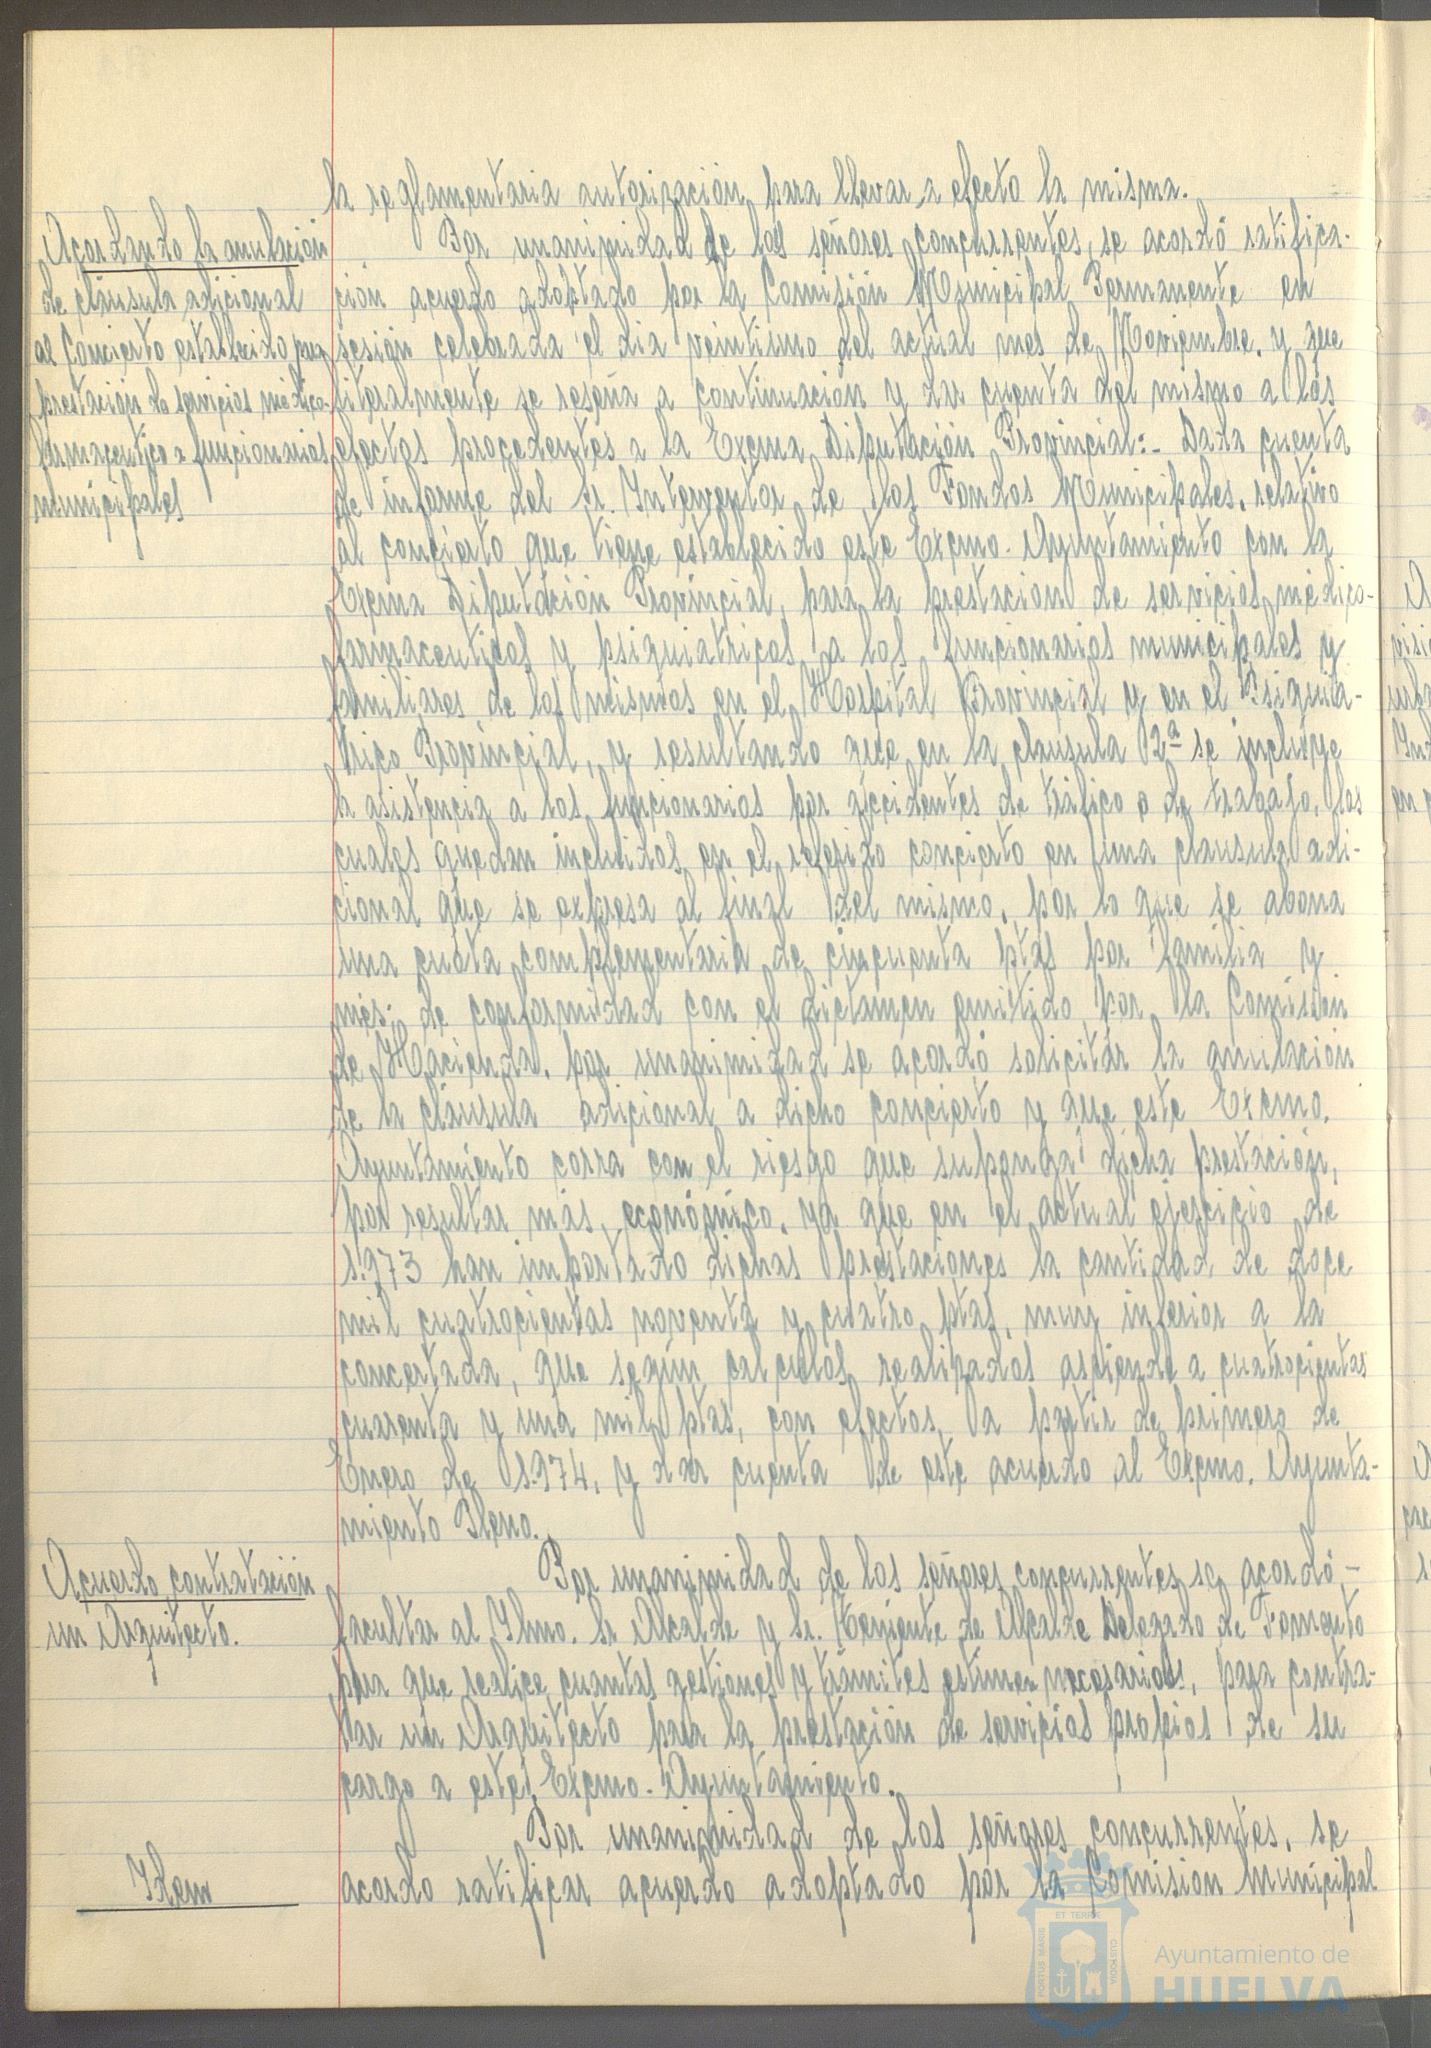 la reglamentaria autorización para llevar a efecto la misma.
Acordando la anulación
de cláusula adicional
al Concierto establecido para
prestación de servicios médico-
farmaceutico a funcionarios
municipales
Por unanimidad de los señores concurrentes, se acordó ratifica-
ción acuerdo adoptado por la Comisión Municipal Permanente en
sesión celebrada el dia veintiuno del actual mes de Noviembre, y que
literalmente se reseña a continuación y dar cuenta del mismo a los
efectos procedentes a la Excma Diputación Provincial:- Dada cuenta
de informe del Sr. Interventor de los Fondos Municipales, relativo
al concierto que tiene establecido este Excmo. Ayuntamiento con la
Excma Diputación Provincial, para la prestación de servicios médico-
farmaceuticos y psiquiatricos a los funcionarios municipales y
familiares de los mismos en el Hospital Provincial y en el Psiquia-
trico Provincial, y resultando que en la clausula 2ª se incluye
la asistencia a los funcionarios por accidentes de tráfico o de trabajo, los
cuales quedan incluidos en el referido concierto en una clausula adi-
cional que se expresa al final del mismo, por lo que se abona
una cuota complementaria de cincuenta ptas por familia y
mes; de conformidad con el dictámen emitido por la Comisión
de Hacienda, por unanimidad se acordó solicitar la anulación
de la cláusula adicional a dicho concierto y que este Excmo.
Ayuntamiento corra con el riesgo que suponga dicha prestación,
por resultar más económico, ya que en el actual ejercicio de
1.973 han importado dichas prestaciones la cantidad de doce
mil cuatrocientas noventa y cuatro ptas, muy inferior a la
concertada, que según calculos realizados asciende a cuatrocientas
cuarenta y una mil ptas, con efectos, a partir de primero de
Enero de 1.974, y dar cuenta de este acuerdo al Excmo. Ayunta-
miento Pleno.
Acuerdo contratación
un Arquitecto.
Por unanimidad de los señores concurrentes se acordó -
facultar al Ilmo. Sr Alcalde y Sr. Teniente de Alcalde Delegado de Fomento
para que realice cuantas gestiones y trámites estimen necesarios, para contra-
tar un Arquitecto para la prestación de servicios propios de su
cargo a este Excmo. Ayuntamiento.
Idem
Por unanimidad de los señores concurrentes, se
acordo ratificar acuerdo adoptado por la Comision Municipal
PORTUS MARIS ET TERRÆ CUSTODIA
Ayuntamiento de
HUELVA